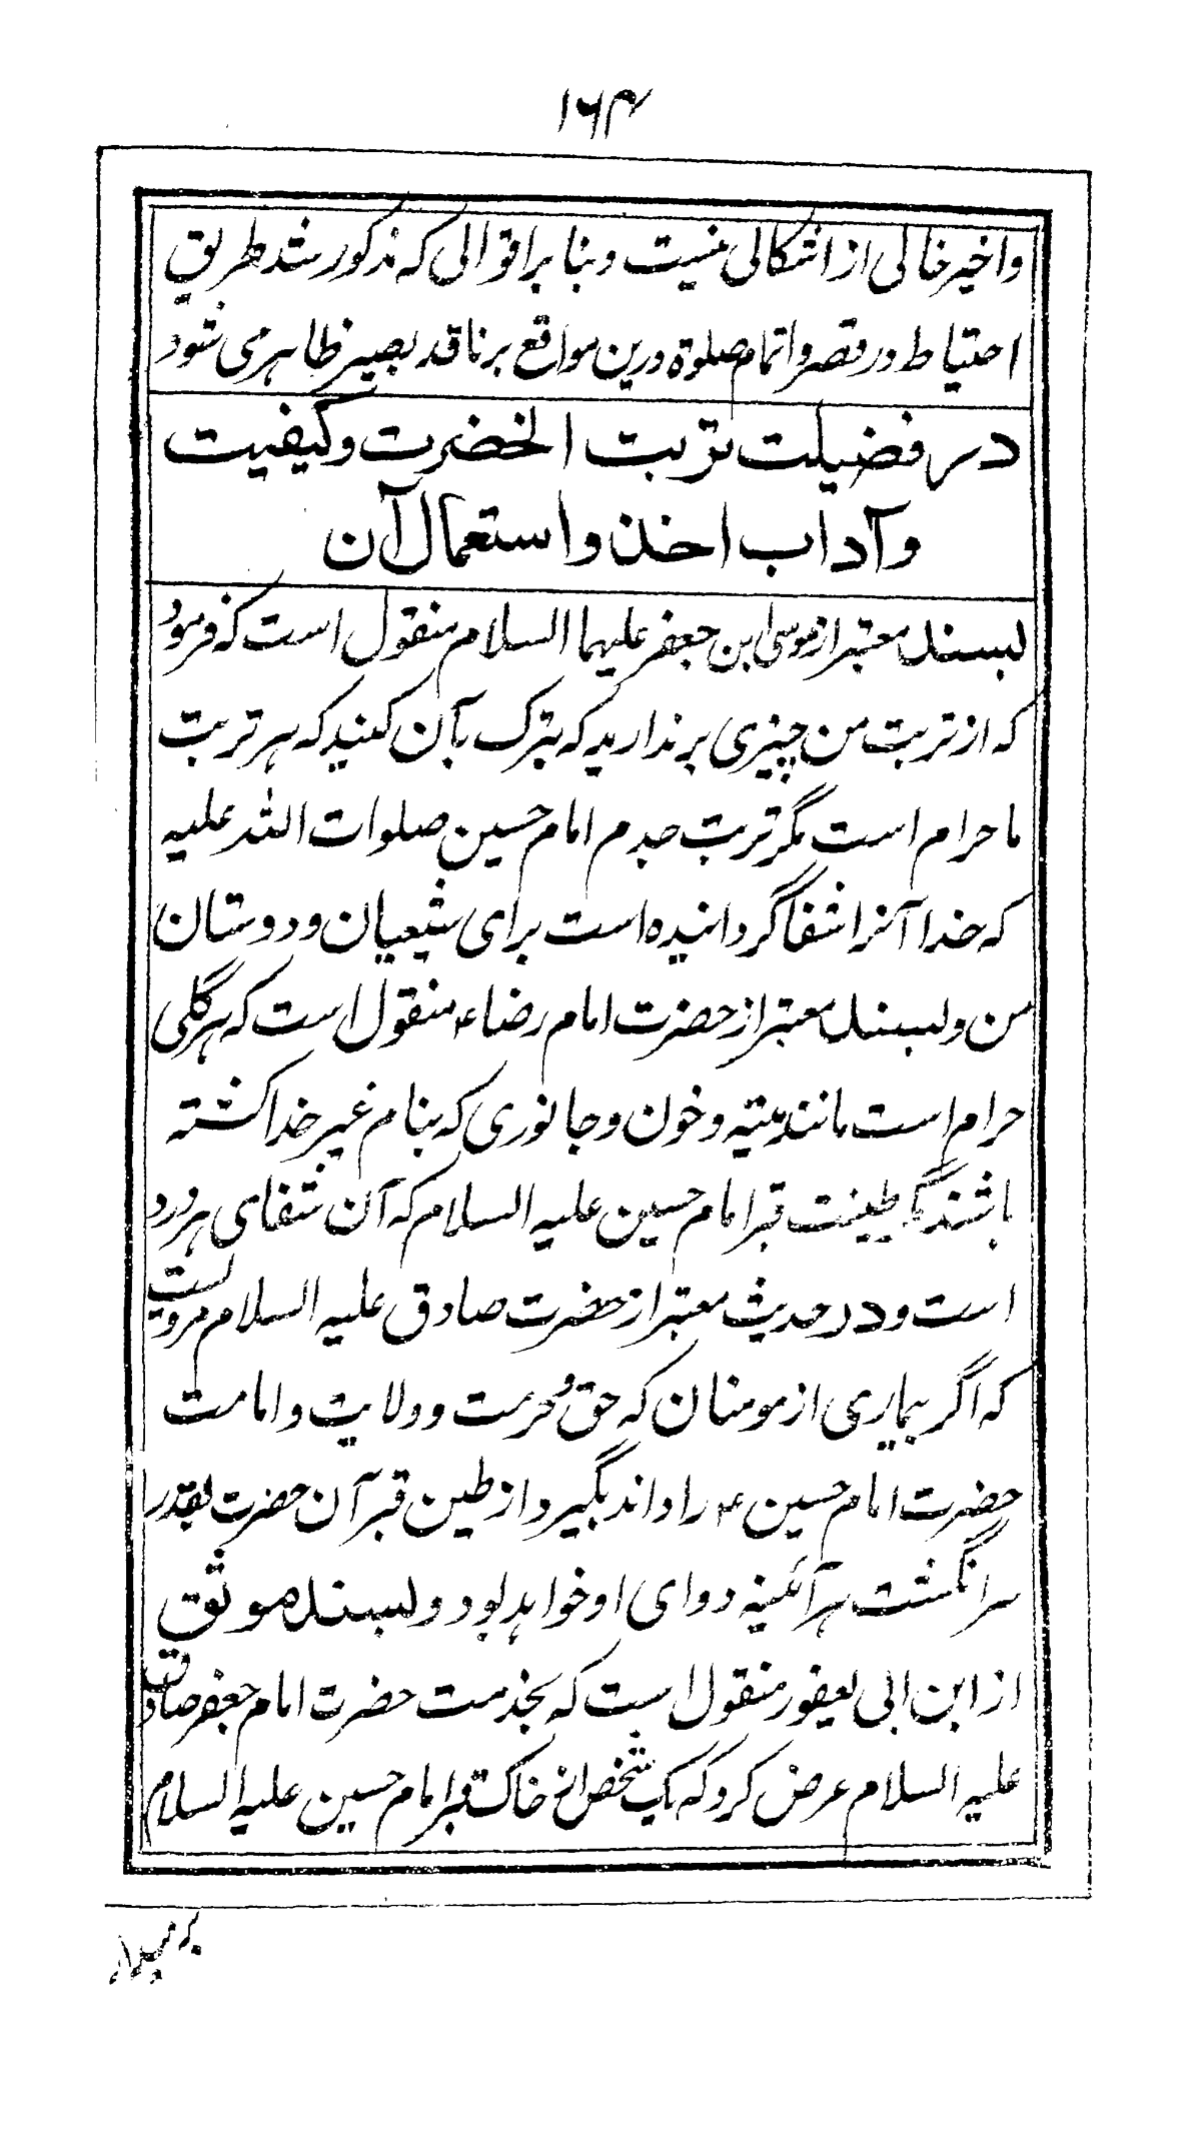 ۱۶۴
واخیر خالی از اشکالی نیست و بنا بر اقوالی که مذکور شد طریق
احتیاط در قصر و اتمام صلوة درین مواقع بر ناقد بصیر ظاهر می شود
در فضیلت تربت انحضرت وکیفیت
وآداب اخذ واستعمال آن
بسند معتبر از موسی ابن جعفر علیهما السلام منقول است که فرمود
که از تربت من چیزی برندارید که تبرک بآن کنید که هر تربت
ما حرام است مگر تربت جدم امام حسین صلوات الله علیه
که خدا آنرا شفا گردانیده است برای شیعیان و دوستان
من و بسند معتبر از حضرت امام رضاء منقول است که هر گلی
حرام است مانند میته و خون و جانوری که بنام غیر خدا کشته
باشند مگر طینت قبر امام حسین علیه السلام که آن شفای هر درد
است و در حدیث معتبر از حضرت صادق علیه السلام مرویست
که اگر بیماری از مومنان که حق و حرمت و ولایت و امامت
حضرت امام حسین ء را داند بگیرد از طین قبر آن حضرت بقدر
سر انگشت هر آئینه دوای او خواهد بود و بسند موثق
از ابن ابی یعفور منقول است که بخدمت حضرت امام جعفر صادق
علیه السلام عرض کرد که یک شخص از خاک قبر امام حسین علیه السلام